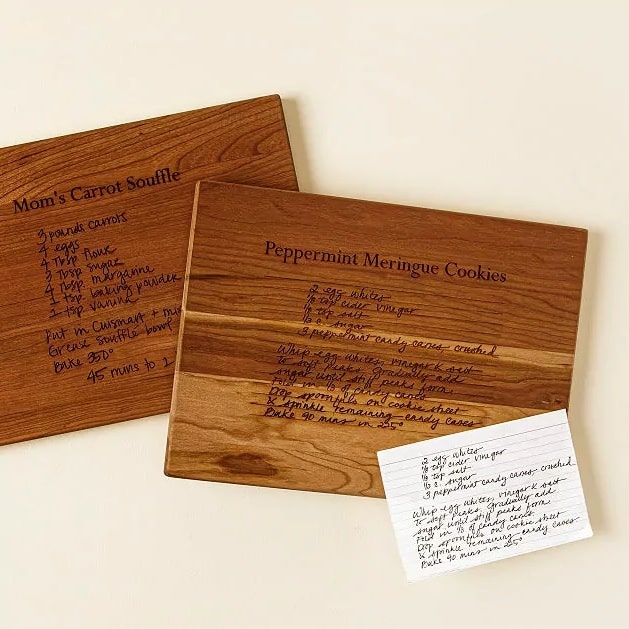 Mom's Carrot Souffle
3 pounds carrots
4 eggs
4 Tbsp flour
3 Tbsp sugar
4 Tbsp. margarine
1 tsp. baking powder
2 tsp. vanilla
Put in Cuisinart + mix
Grease souffle bowl
Bake 350°
45 mins to 1
Peppermint Meringue Cookies
2 egg whites
1/8 tsp cider vinegar
1/8 tsp salt
1/2 c. sugar
3 peppermint candy canes, crushed
Whip egg whites, vinegar & salt
to soft peaks, gradually add
sugar until stiff peaks form.
Fold in 1/3 of candy canes
Drop spoonfuls on cookie sheet
& sprinkle remaining candy canes
Bake 90 mins in 225°
2 egg whites
1/8 tsp cider vinegar
1/8 tsp salt
1/2 c. sugar
3 peppermint candy canes, crushed
Whip egg whites, vinegar & salt
to soft peaks, gradually add
sugar until stiff peaks form.
Fold in 1/3 of candy canes.
Drop spoonfuls on cookie sheet
& sprinkle remaining candy canes
Bake 90 mins in 225°